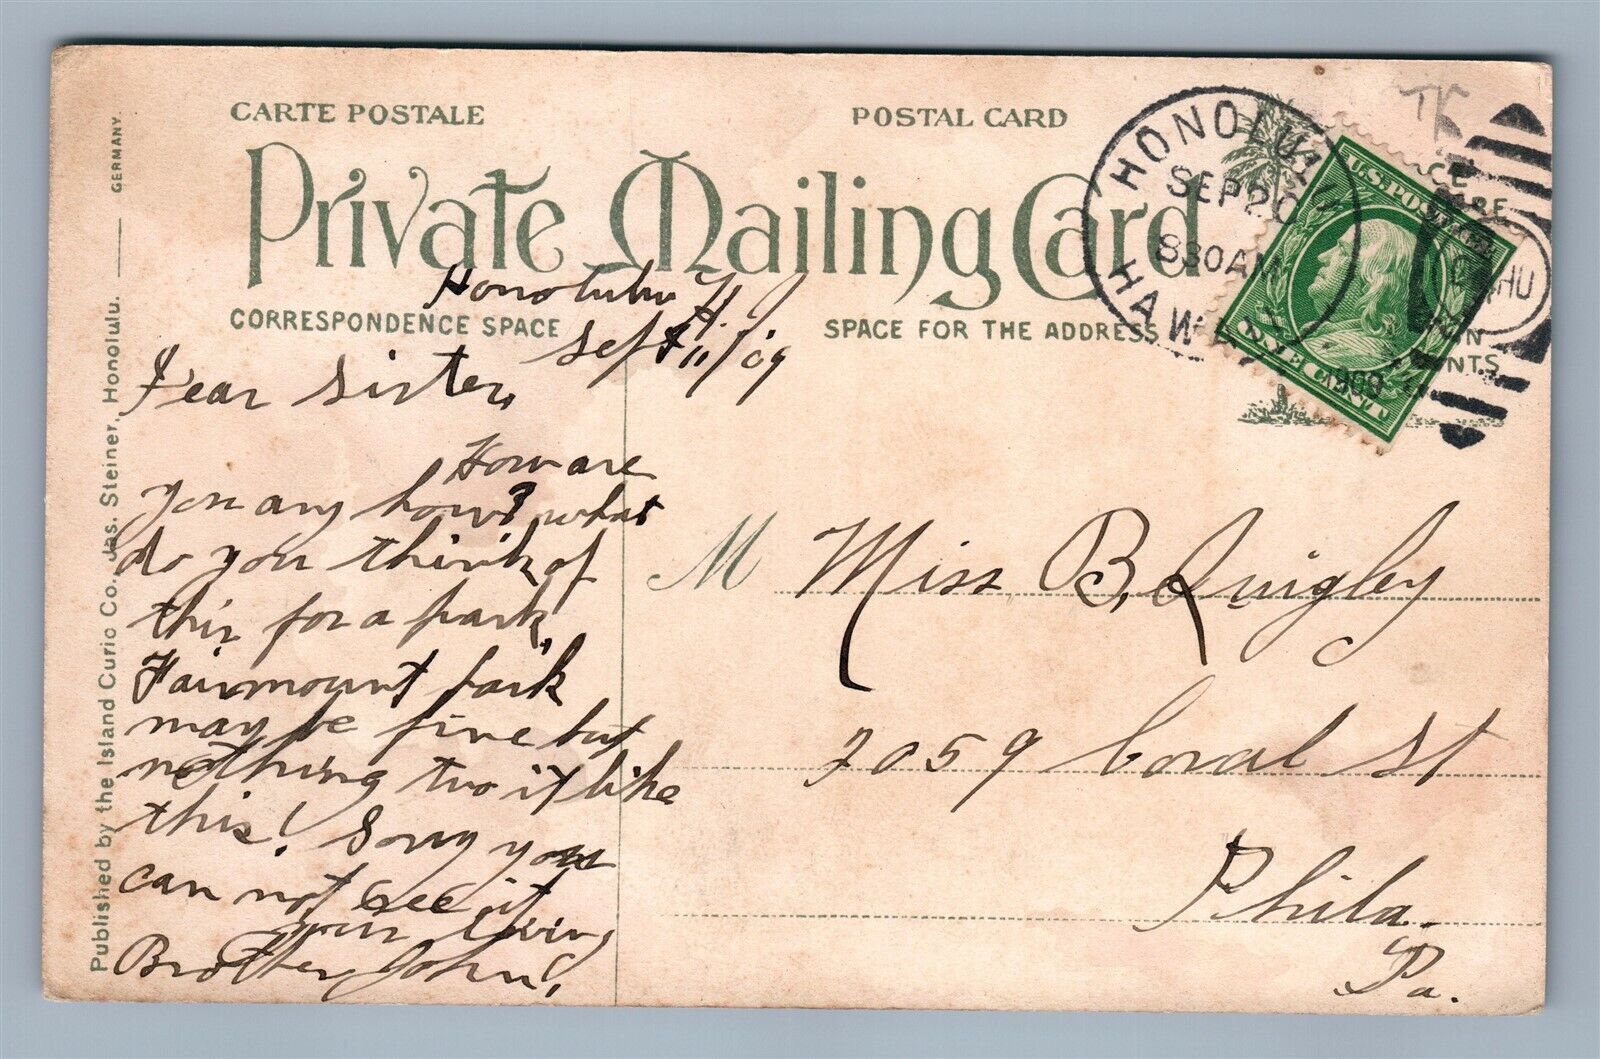 CARTE POSTALE
POSTAL CARD
Private Mailing Card
CORRESPONDENCE SPACE
SPACE FOR THE ADDRESS
Published by the Island Curio Co. Jas. Steiner, Honolulu. GERMANY.
HONOLULU
SEP 20
830 AM
1909
HAWAII
U.S. POSTAGE
ONE CENT
Honolulu H. J
Sept 11/09
Dear Sister,
How are
you any how? what
do you think of
this for a park,
Fairmount Park
may be fine but
nothing two it like
this! Sorry you
can not see it
your loving
Brother John,
M Miss B. Quigley
2059 Coral St
Phila.
Pa.